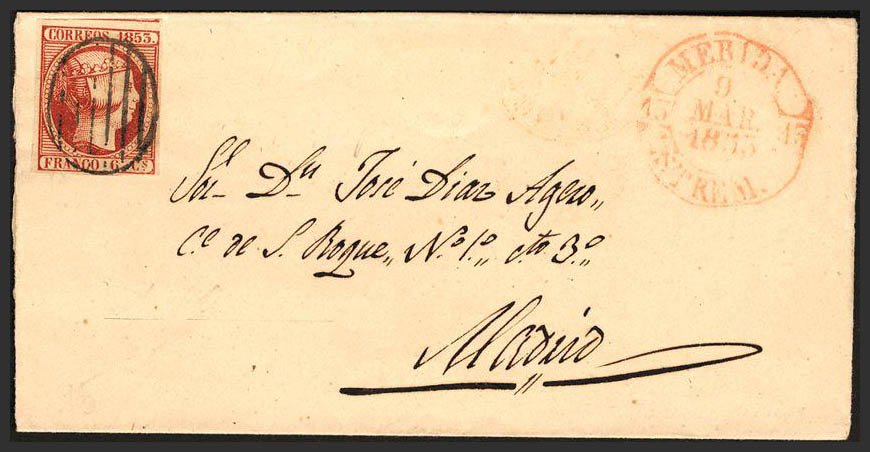 CORREOS 1853.
FRANCO 6 Cs
MERIDA
9
MAR
1853
ESTREM.
Sor Dn José Diaz Agero,,
Ce de S. Roque,, No 1o,, cto 3o,,
Madrid